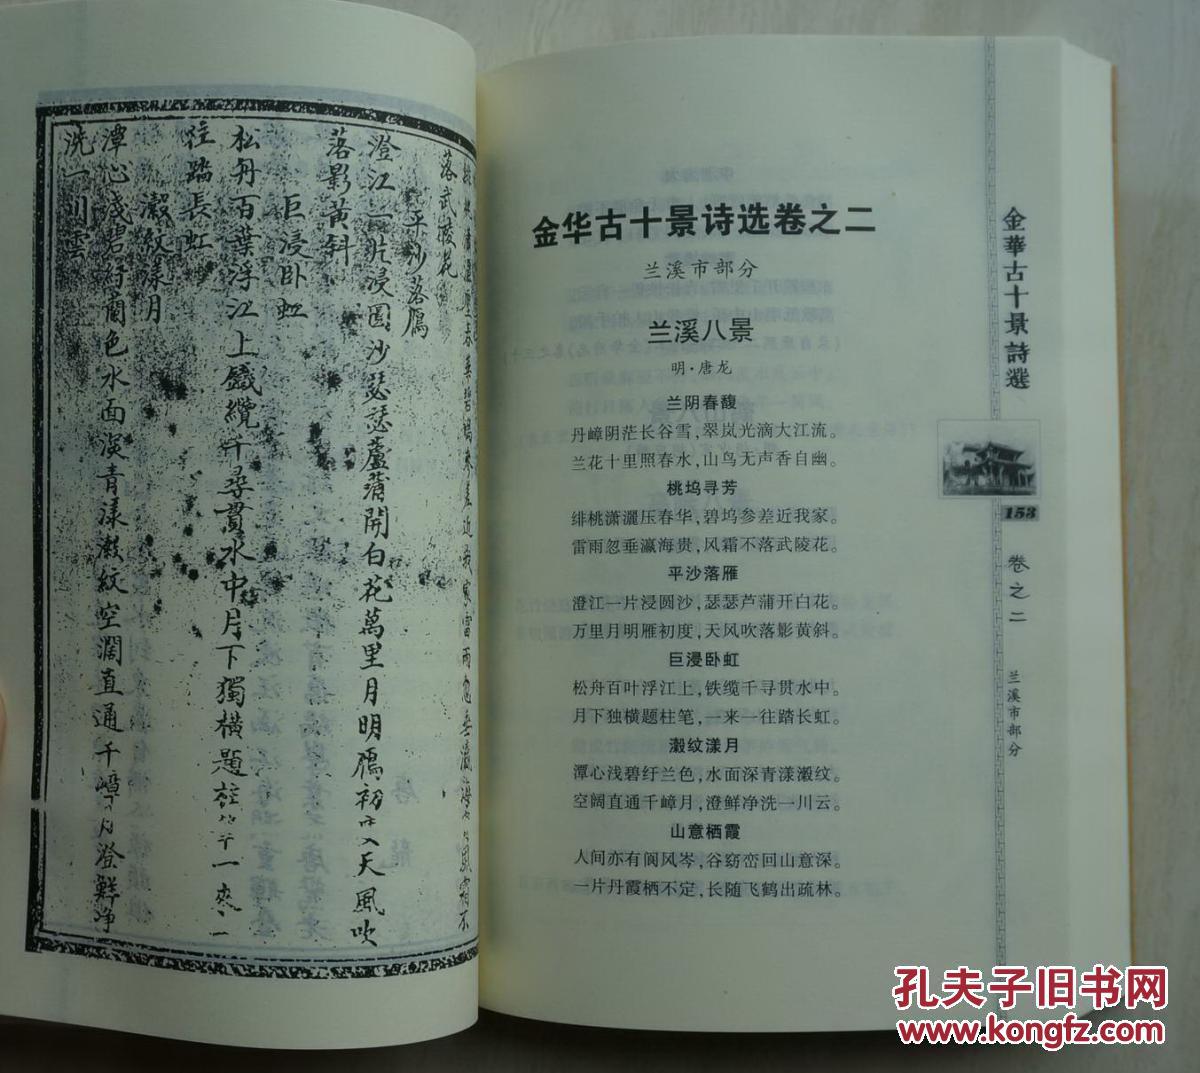 緋桃瀟灑壓春華碧塢參差近我家雷雨忽垂瀛海貴風霜不
落武陵花
平沙落鴈
澄江一片浸圓沙瑟瑟蘆蒲開白花萬里月明鴈初度天風吹
落影黃斜
巨浸卧虹
松舟百葉浮江上鐵纜千尋貫水中月下獨橫題柱筆一來一
往踏長虹
瀫紋漾月
潭心淺碧紆蘭色水面深青漾瀫紋空濶直通千嶂月澄鮮淨
洗一川雲
金华古十景诗选卷之二
兰溪市部分
兰溪八景
明·唐龙
兰阴春馥
丹嶂阴茫长谷雪，翠岚光滴大江流。
兰花十里照春水，山鸟无声香自幽。
桃坞寻芳
绯桃潇灑压春华，碧坞参差近我家。
雷雨忽垂瀛海贵，风霜不落武陵花。
平沙落雁
澄江一片浸圆沙，瑟瑟芦蒲开白花。
万里月明雁初度，天风吹落影黄斜。
巨浸卧虹
松舟百叶浮江上，铁缆千寻贯水中。
月下独横题柱笔，一来一往踏长虹。
瀫纹漾月
潭心浅碧纡兰色，水面深青漾瀫纹。
空阔直通千嶂月，澄鲜净洗一川云。
山意栖霞
人间亦有阆风岑，谷窈峦回山意深。
一片丹霞栖不定，长随飞鹤出疏林。
金華古十景詩選
153
卷之二
兰溪市部分
孔夫子旧书网
www.kongfz.com